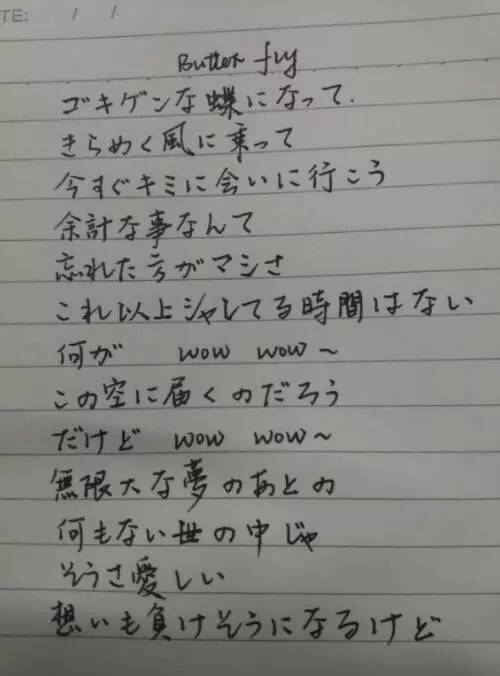 TE: / /
Butter fly
ゴキゲンな蝶になって.
きらめく風に乗って
今すぐキミに会いに行こう
余計な事なんて
忘れた方がマシさ
これ以上シャレてる時間はない
何が wow wow~
この空に届くのだろう
だけど wow wow~
無限大な夢のあとの
何もない世の中じゃ
そうさ愛しい
想いも負けそうになるけど